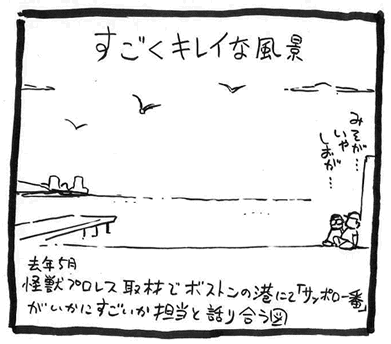 すごくキレイな風景
みそが…
いや
しおが…
去年5月
怪獣プロレス取材でボストンの港にて「サッポロ一番」
がいかにすごいか担当と語り合う図